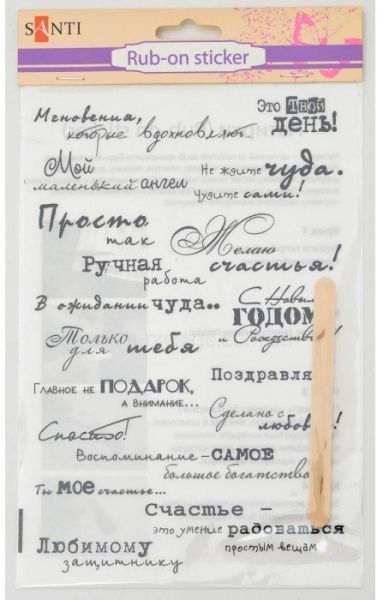 SANTI
Rub-on sticker
Мгновения,
которые вдохновляют...
Это ТВОЙ
день!
Мой
маленький ангел
Не ждите чуда.
Чудите сами!
Просто
так
Желаю
счастья!
Ручная
работа
В ожидании чуда..
С Новым
ГОДОМ
и Рождеством!
Только
для тебя
Поздравля
Главное не ПОДАРОК,
а Внимание...
Сделано с
любовью!
Спасибо!
Воспоминание - САМОЕ
большое богатство
Ты мое счастье...
Счастье -
это умение радоваться
простым вещам
Любимому
защитнику